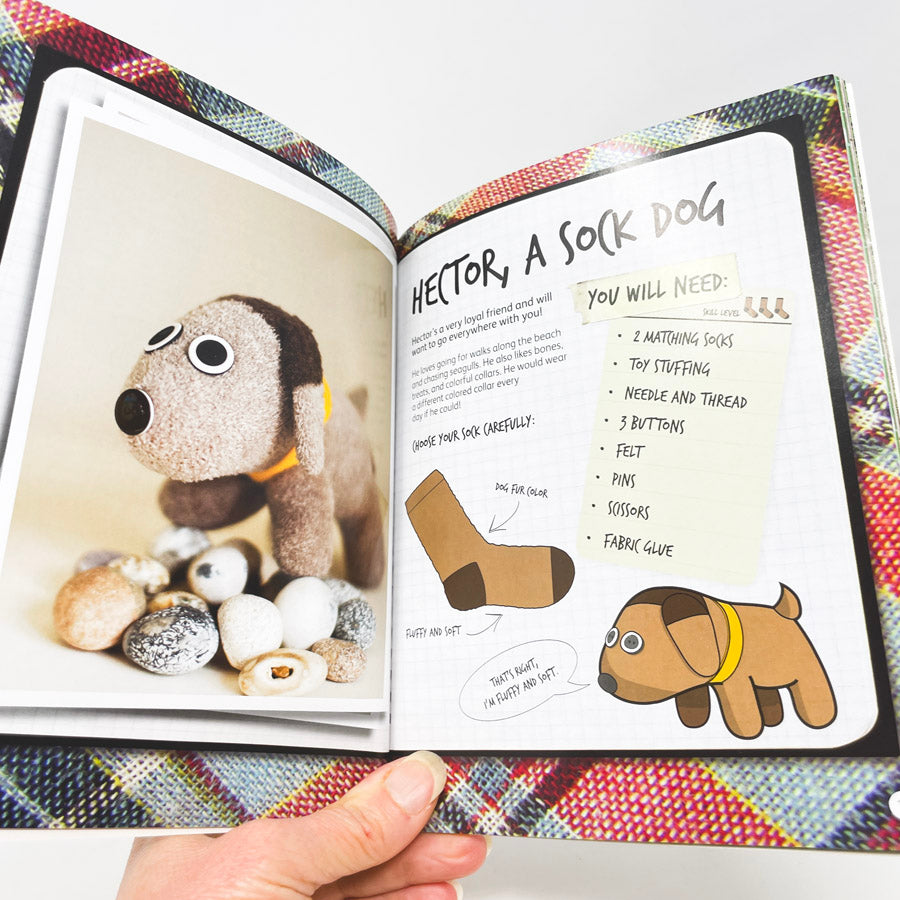 HECTOR, A SOCK DOG
Hector's a very loyal friend and will
want to go everywhere with you!
He loves going for walks along the beach
and chasing seagulls. He also likes bones,
treats, and colorful collars. He would wear
a different colored collar every
day if he could!
CHOOSE YOUR SOCK CAREFULLY:
DOG FUR COLOR
FLUFFY AND SOFT
THAT'S RIGHT,
I'M FLUFFY AND SOFT.
YOU WILL NEED:
SKILL LEVEL
• 2 MATCHING SOCKS
• TOY STUFFING
• NEEDLE AND THREAD
• 3 BUTTONS
• FELT
• PINS
• SCISSORS
• FABRIC GLUE